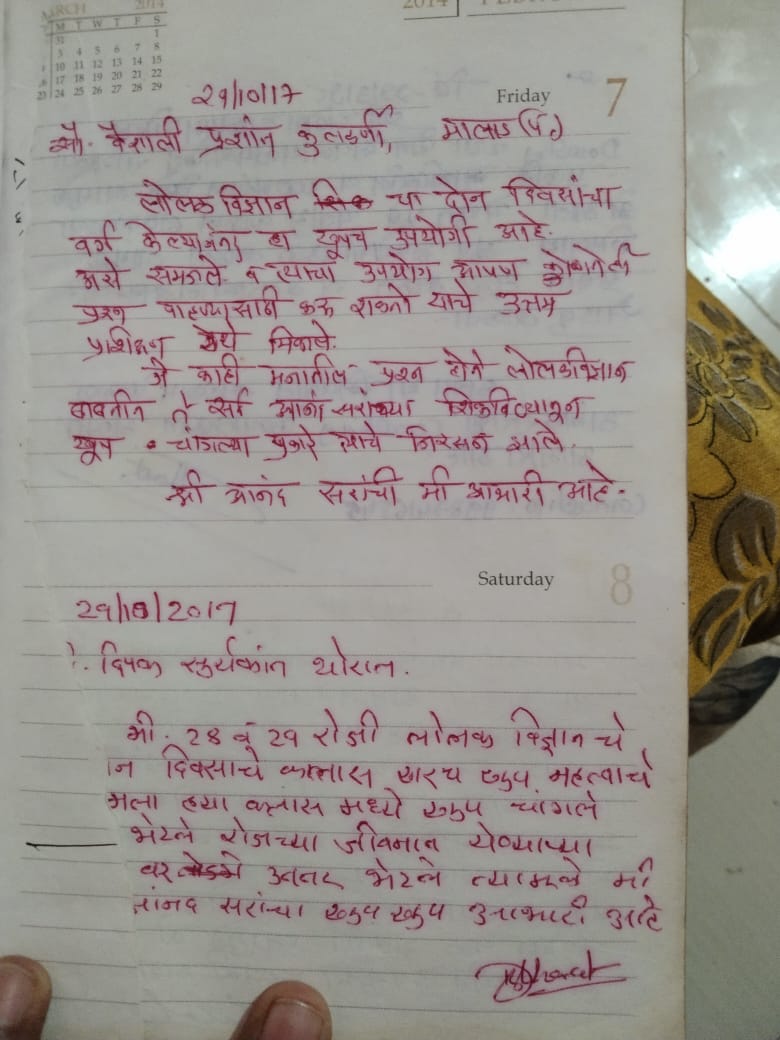 MARCH 2014
M T W T F S
31 1
3 4 5 6 7 8
10 11 12 13 14 15
17 18 19 20 21 22
23 24 25 26 27 28 29
2014
29/10/17
Friday 7
सौ. वैशाली प्रशांत कुलकर्णी, मालाड (प.)
लोलक विज्ञान या दोन दिवसांचा
वर्ग केल्यानंतर हा खूपच उपयोगी आहे.
असे समजले. व त्याचा उपयोग आपण कोणतेही
प्रश्न पाहण्यासाठी करू शकतो याचे उत्तम
प्रशिक्षण येथे मिळाले.
जे काही मनातील प्रश्न होते लोलकविज्ञान
बाबतीत ते सर्व आनंद सरांच्या शिकविण्यातून
खूप चांगल्या प्रकारे त्याचे निरसन झाले.
श्री आनंद सरांची मी आभारी आहे.
Saturday 8
29/10/2017
दिपक सुर्यकांत थोरात.
मी. 28 व 29 रोजी लोलक विज्ञान चे
न दिवसाचे क्लास खरच खुप महत्वाचे
मला ह्या क्लास मध्ये खुप चांगले
भेटले रोजच्या जीवनात येण्याऱ्या
वर उत्तर भेटले त्यामुळे मी
नंद सरांचा खुप खुप आभारी आहे